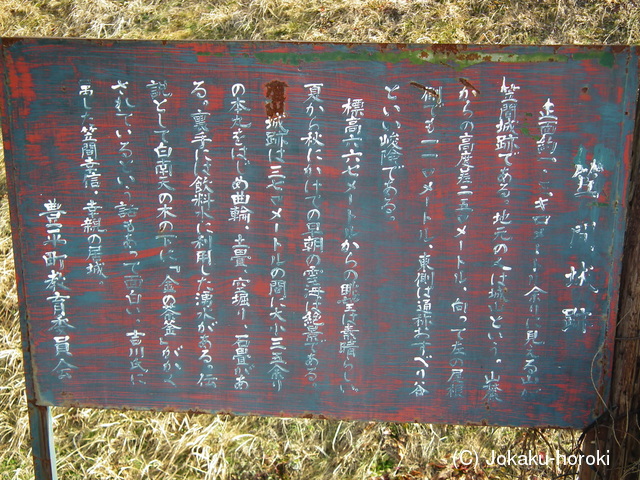 笠間城跡
正面約一・五キロメートル余りに見える山が
笠間城跡である。地元の人は城山という。山麓
からの高度差二五〇メートル、向って左の尾根
側でも一一〇メートル、東側は通称おすべり谷
といい峻険である。
標高六六七メートルからの眺望は素晴らしい
夏から秋にかけての早朝の雲海は絶景である。
城跡は三七〇メートルの間に大小三五余り
の本丸をはじめ曲輪、土畳、空堀り、石畳があ
る。裏手には飲料水に利用した湧水がある。伝
説として白南天の木の下に『金の茶釜』がかく
されているという話もあって面白い。吉川氏に
属した笠間 信、幸親の居城。
豊平町教育委員会
(C) Jokaku-horoki